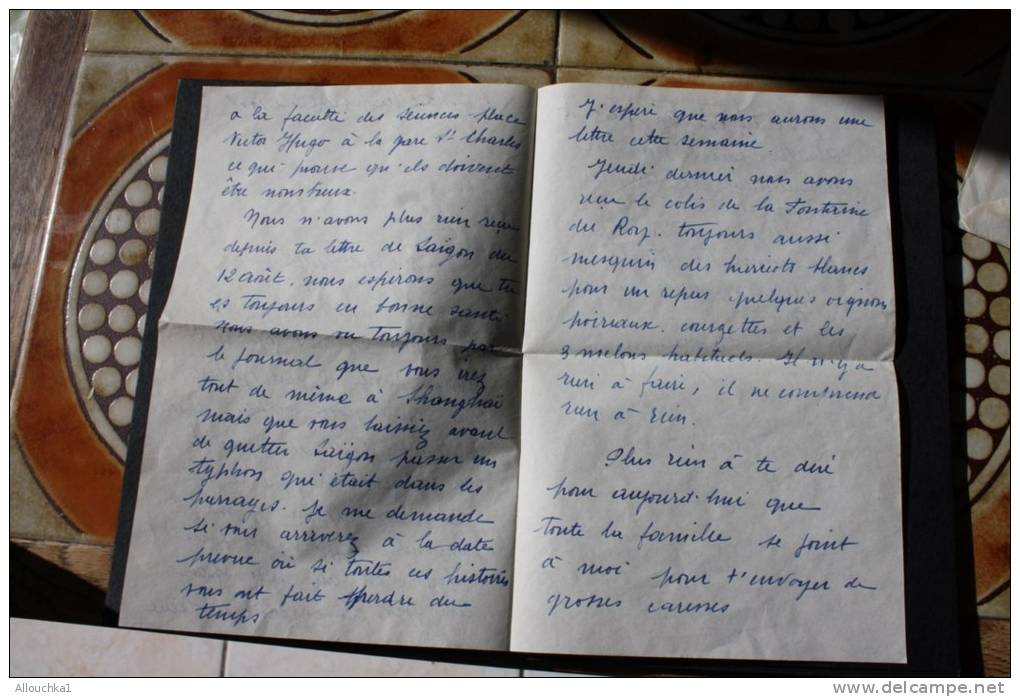 à la faculté des Sciences place
Victor Hugo à la gare St Charles
ce qui prouve qu'ils doivent
être nombreux.
Nous n'avons plus rien reçu
depuis ta lettre de Saïgon du
12 août, nous espérons que tu
es toujours en bonne santé
nous avons vu toujours par
le journal que vous irez
tout de même à Shanghaï
mais que vous laissiez avant
de quitter Saïgon passer un
typhon qui était dans les
parrages. Je me demande
si vous arriverez à la date
prevue où si toutes ces histoires
vous ont fait perdre du
temps
J'espere que nous aurons une
lettre cette semaine.
Jeudi dernier nous avons
reçu le colis de la Fontaine
du Roy. toujours aussi
mesquin des haricots blancs
pour un repas quelques oignons
poireaux. courgettes et les
3 melons habituels. Il n'y a
rien à faire, il ne comprend
rien à rien.
Plus rien à te dire
pour aujourd'hui que
toute la famille se joint
à moi pour t'envoyer de
grosses caresses
Allouchka1
www.delcampe.net